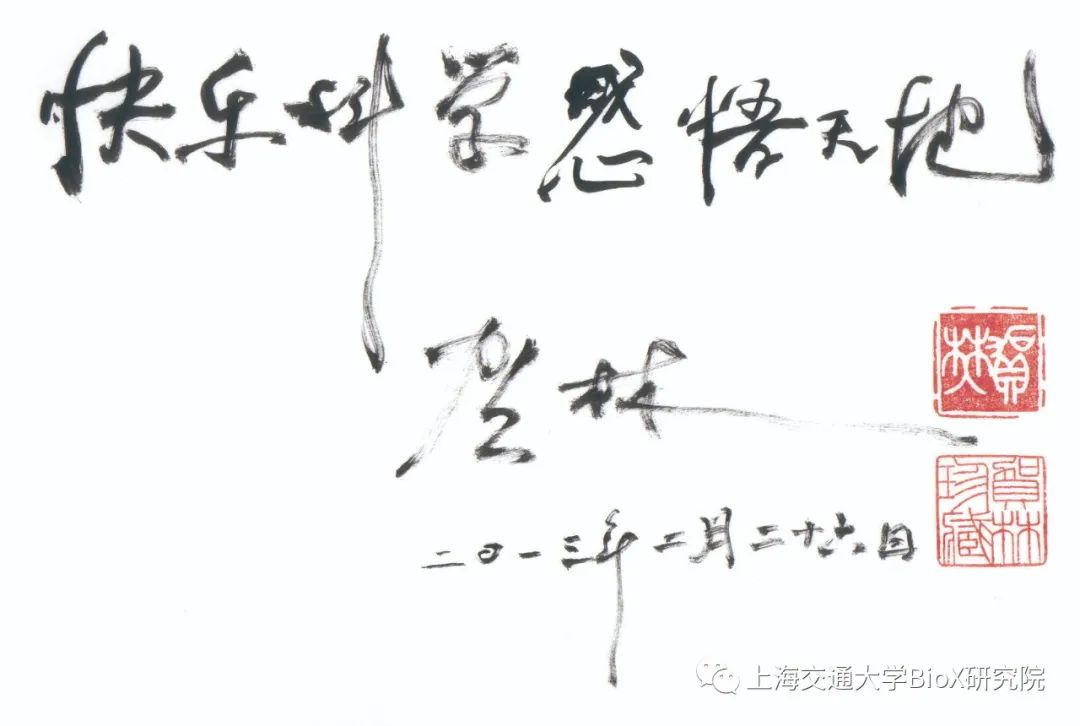 快乐科学感悟天地
贺林
二〇一三年二月二十六日
贺林
贺林珍藏
上海交通大学BioX研究院